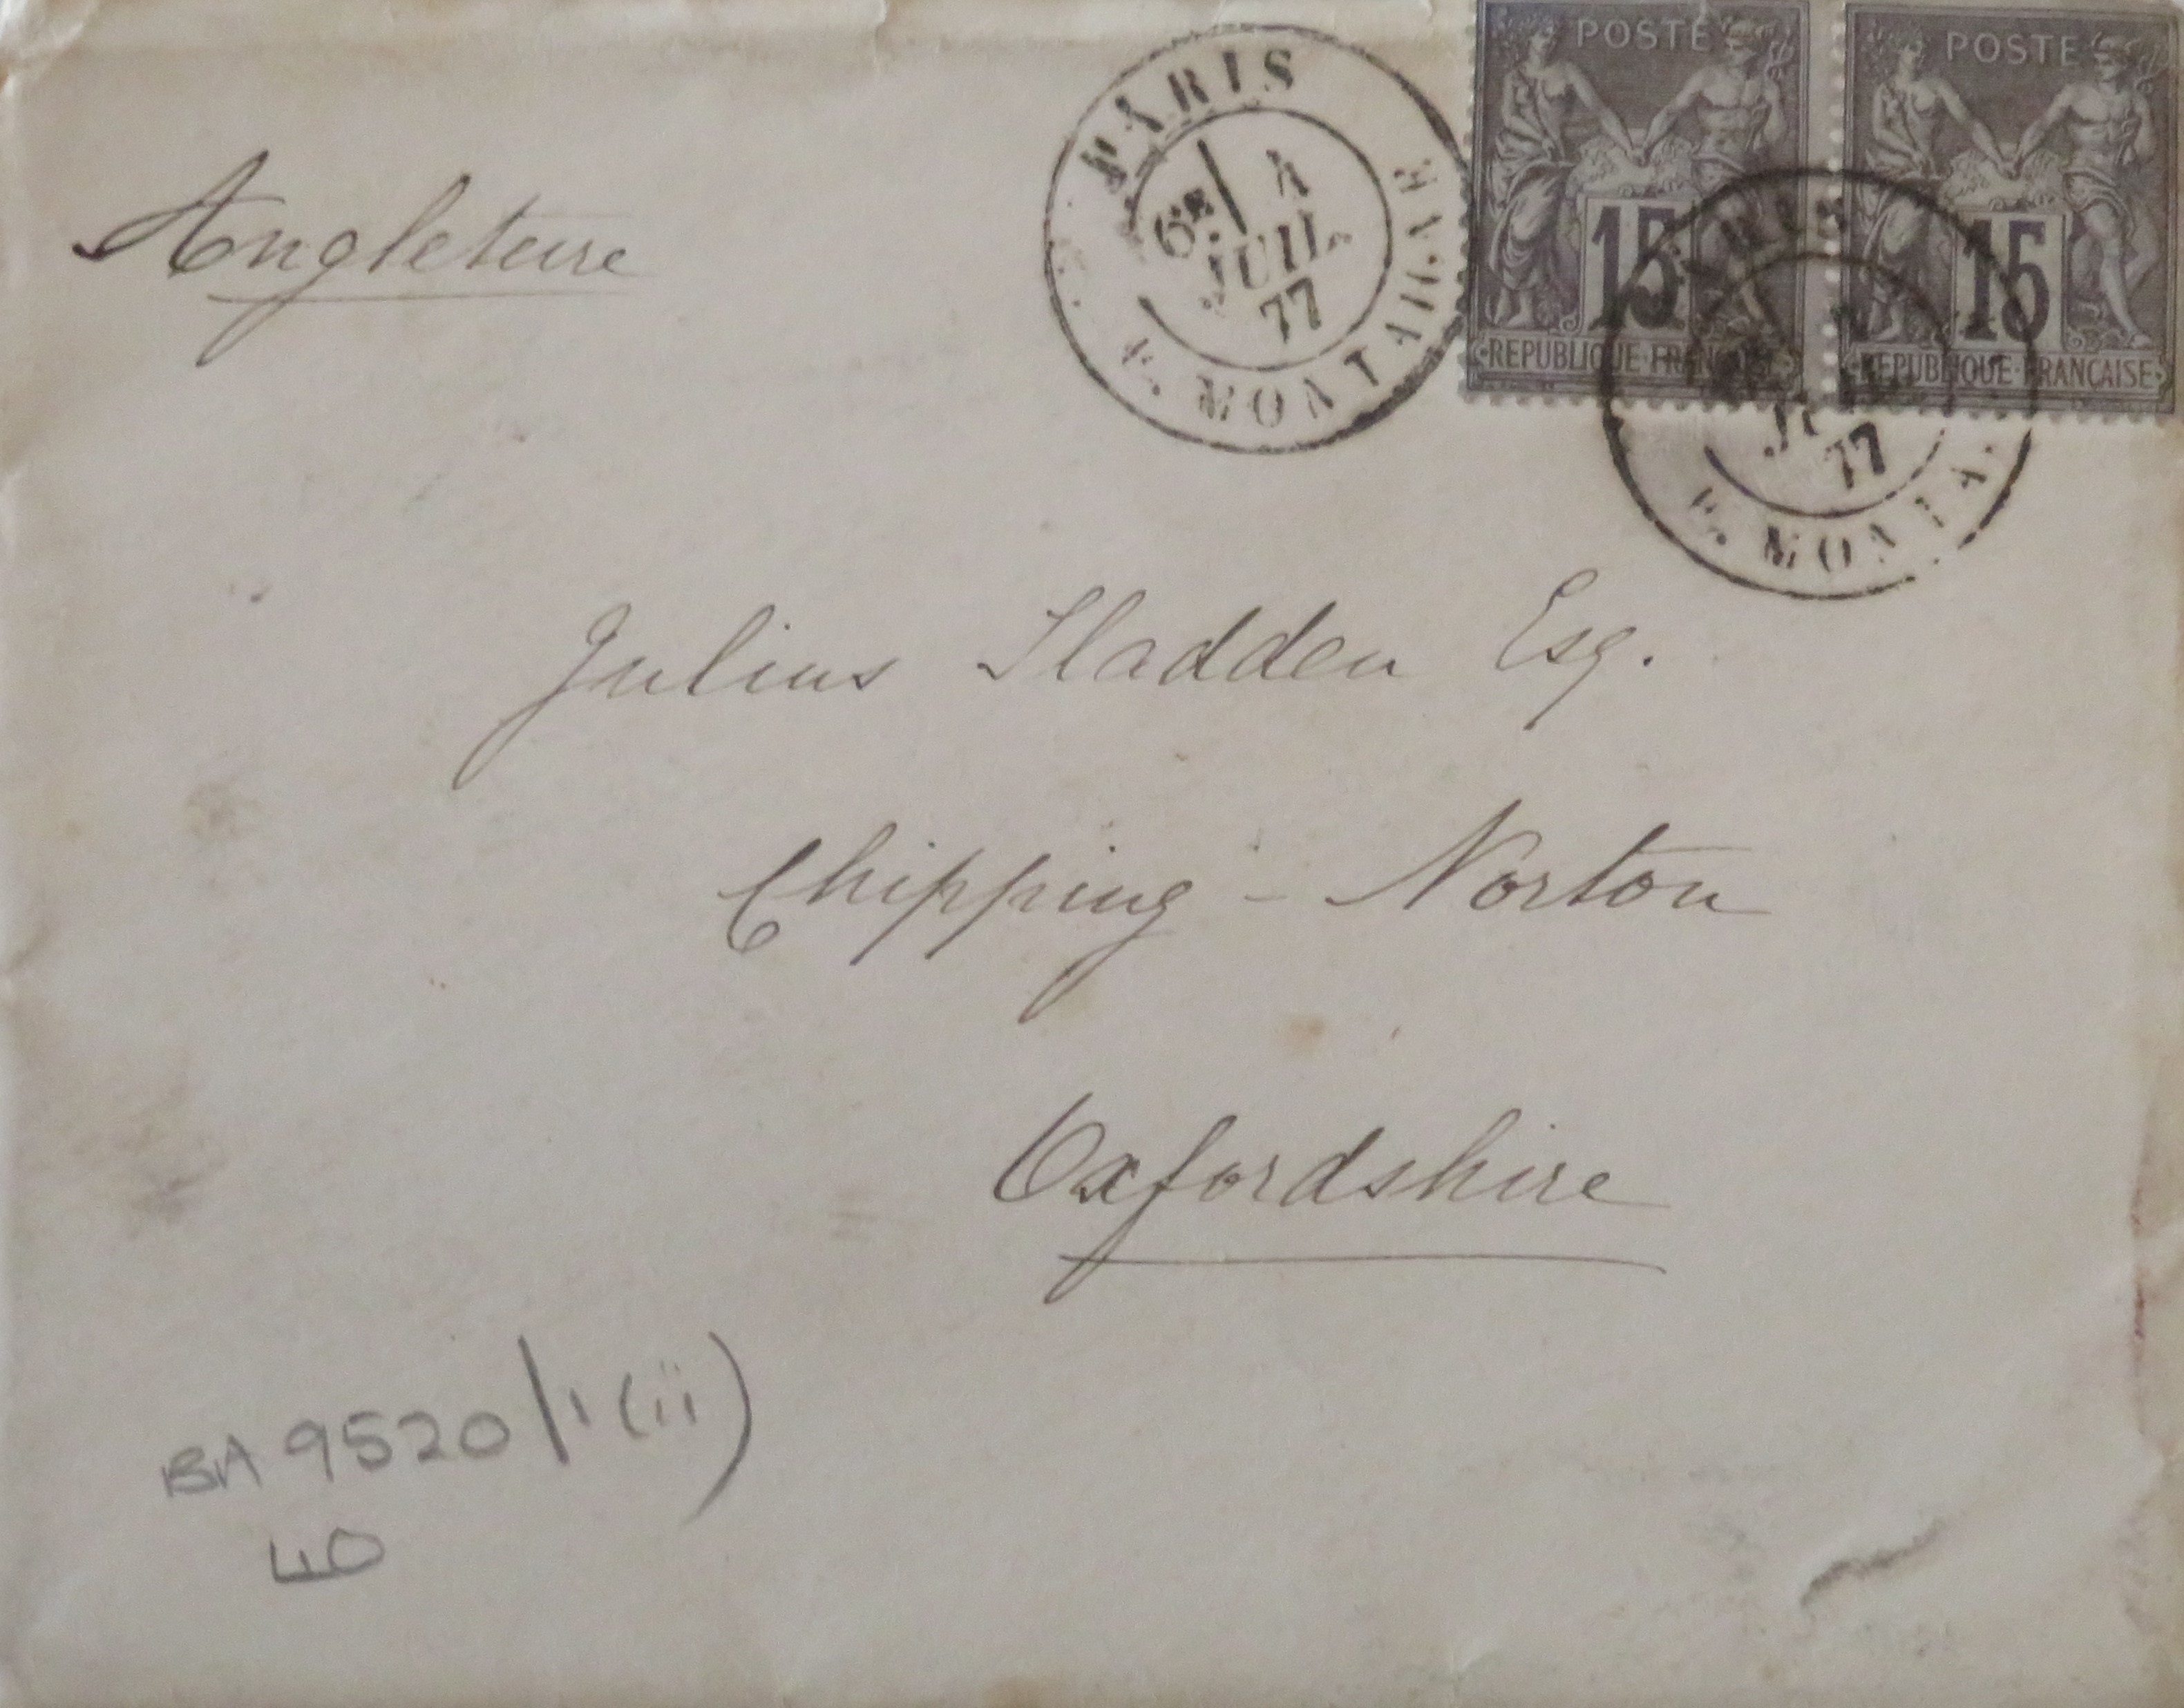 Angleterre
PARIS
6E A
JUIL.
77
R. MONTAIGNE
POSTE
15
REPUBLIQUE FRANÇAISE
POSTE
15
REPUBLIQUE FRANÇAISE
77
R. MONTA
Julius Sladden Esq.
Chipping - Norton
Oxfordshire
BA 9520/1(ii)